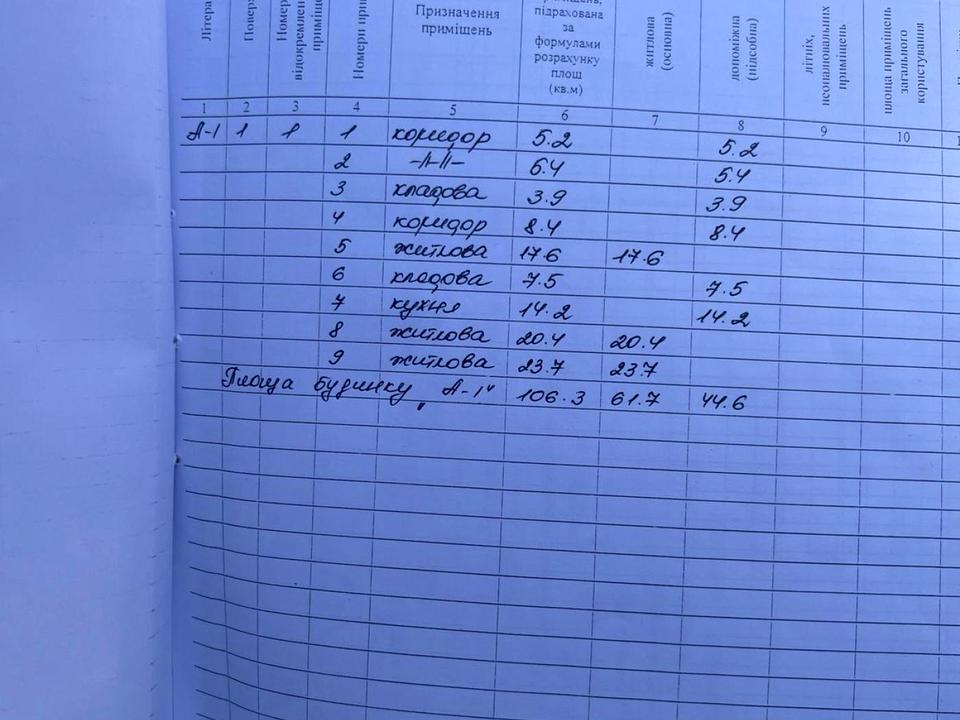 Літера
Повер
Номер
відокремлен
приміще
Номери прим
Призначення
приміщень
приміщень,
підрахована
за
формулами
розрахунку
площ
(кв.м)
житлова
(основна)
допоміжна
(підсобна)
літніх,
неопалювальних
приміщень
площа приміщень
загального
користування
1 2 3 4 5 6 7 8 9 10 1
А-1 1 1 1 коридор 5.2 5.2
2 -//-//- 6.4 5.4
3 кладова 3.9 3.9
4 коридор 8.4 8.4
5 житлова 17.6 17.6
6 кладова 7.5 7.5
7 кухня 14.2 14.2
8 житлова 20.4 20.4
9 житлова 23.7 23.7
Площа будинку „А-1" 106.3 61.7 44.6